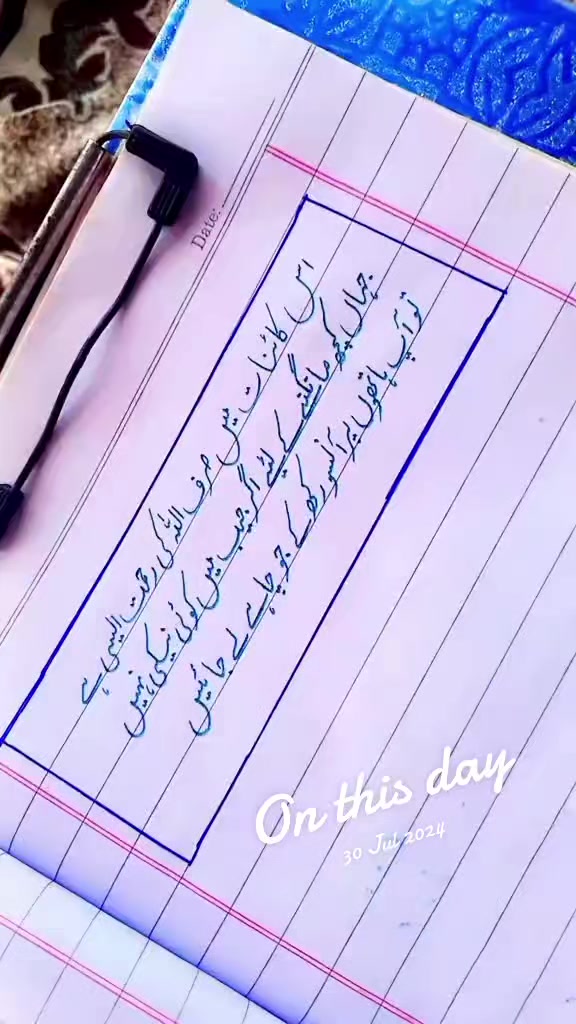 Date:
اس کائنات میں صرف اللہ کی رحمت ایسی ہے
جہاں کچھ مانگنے کے لئے اگر جیب میں کوئی نیکی نہیں
تو آپ ہاتھوں پر آنسو رکھ کے جو چاہے لے جائیں
On this day
30 Jul 2024